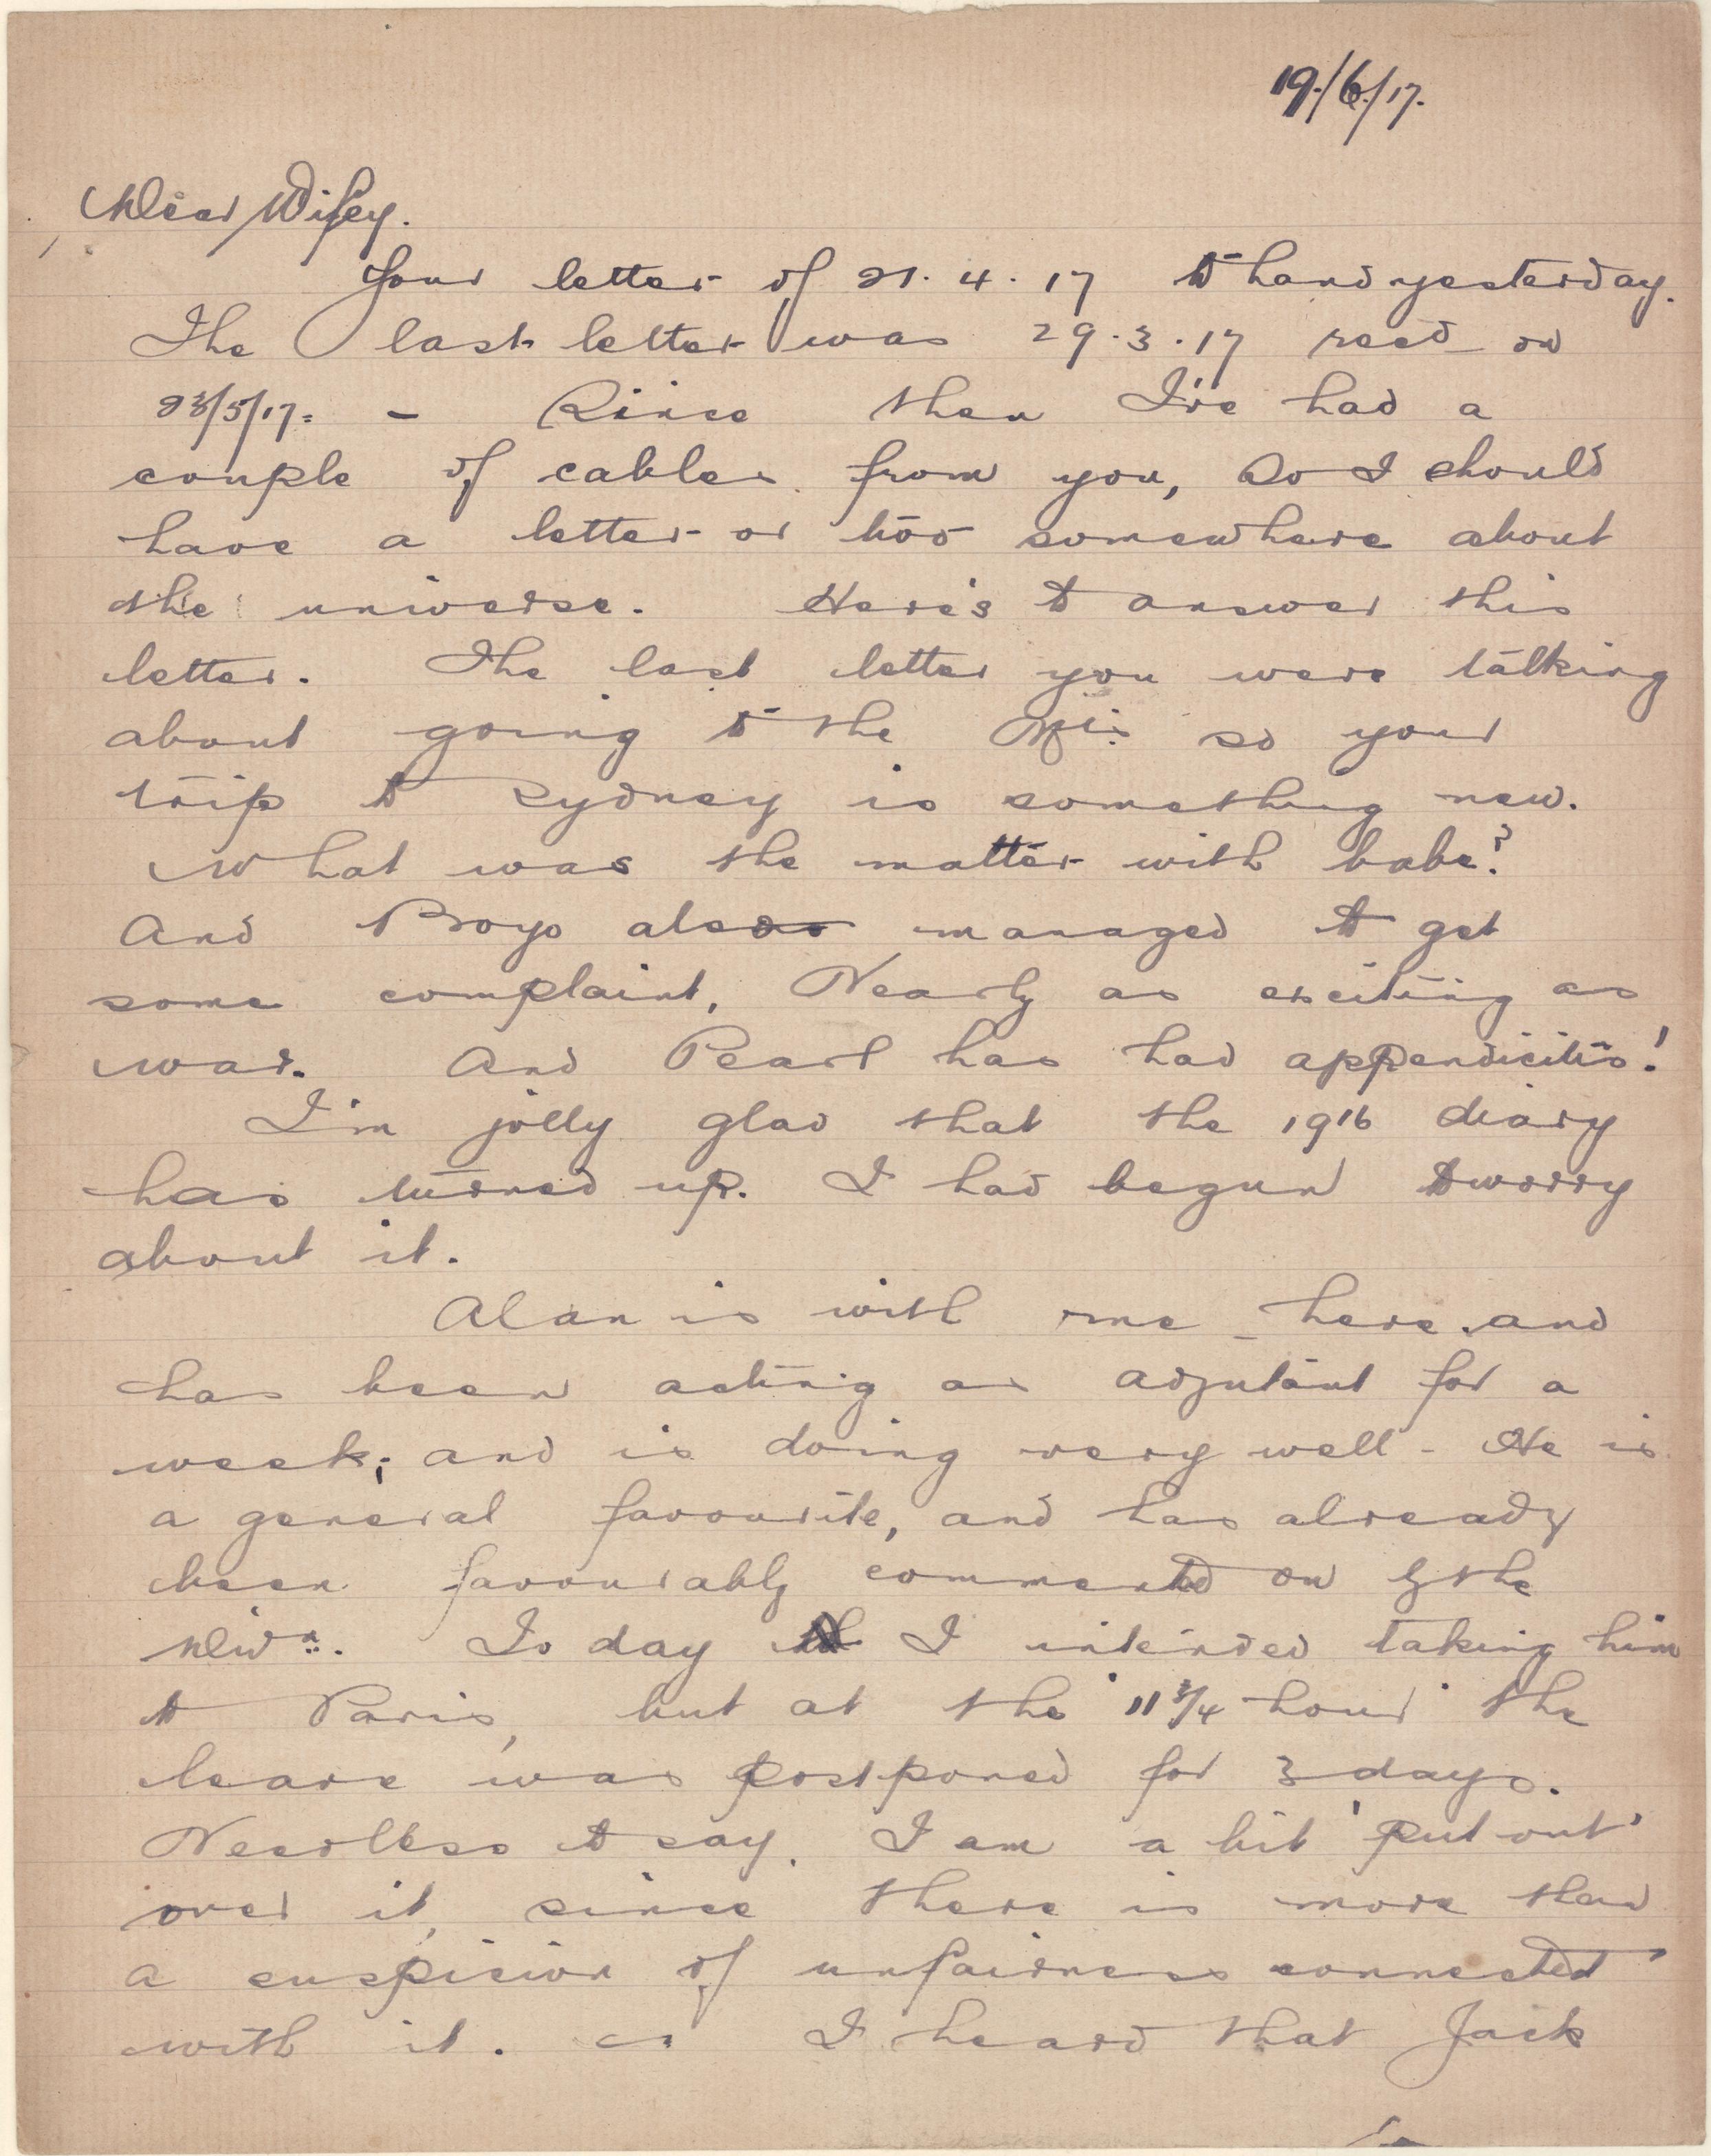 19./6./17.
Dear Wifey.
Your letter of 21.4.17 to hand yesterday.
The last letter was 29.3.17 recd on
23/5/17. - Since then I've had a
couple of cables from you, so I should
have a letter or two somewhere about
the universe. Here's to answer this
letter. The last letter you were talking
about going to the so your
trip to Sydney is something new.
What was the matter with babe?
And Boyo also managed to get
some complaint, Nearly as exciting as
war. And Pearl has had appendicitis!
I'm jolly glad that the 1916 diary
has turned up. I had begun to worry
about it.
Alan is with me here and
has been acting as adjutant for a
week; and is doing very well - He is
a general favourite, and has already
been favourably commented on by the
Divn. To day I intended taking him
to Paris, but at the '11 3/4 hour' the
leave was postponed for 3 days.
Needless to say, I am a bit 'put out'
over it, since there is more than
a suspicion of unfairness connected
with it. I heard that Jack